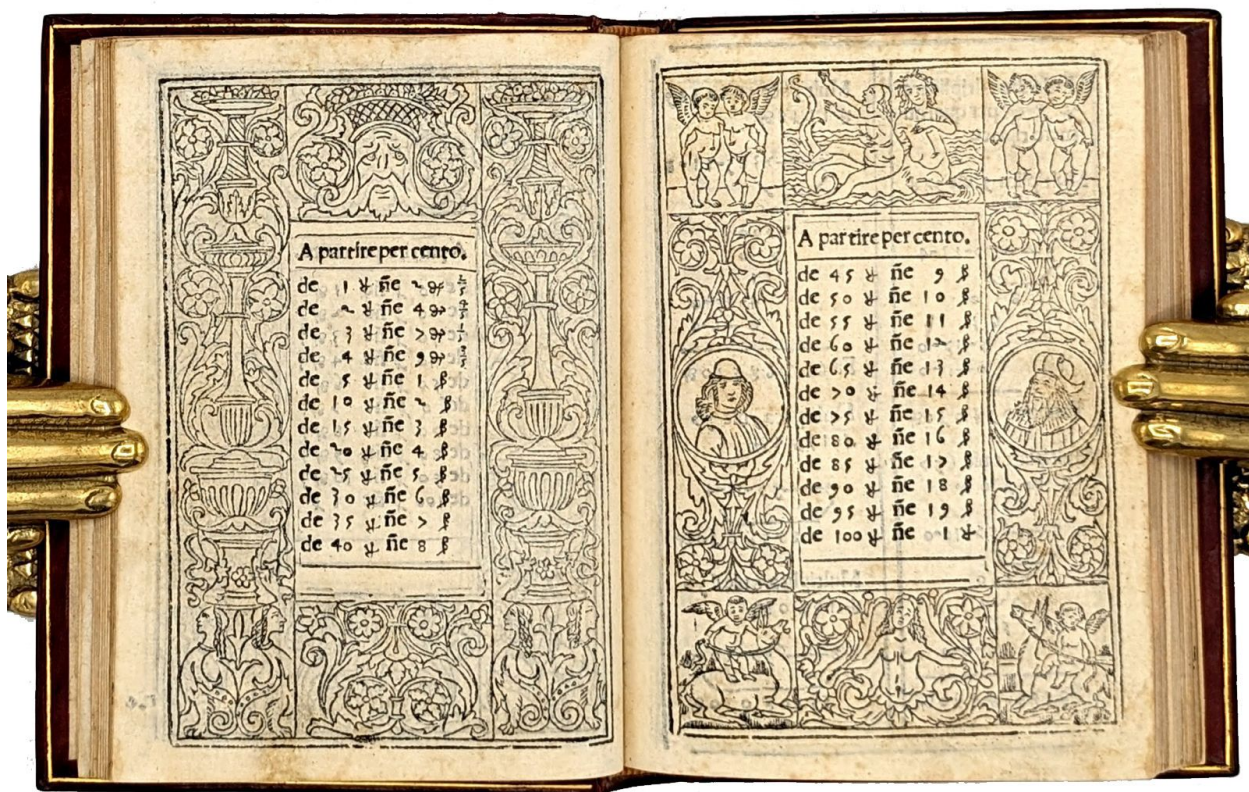 A partire per cento.
de 1 £ ñe 2 ₰ 2/5
de 2 £ ñe 4 ₰ 4/5
de 3 £ ñe 7 ₰ 1/5
de 4 £ ñe 9 ₰ 3/5
de 5 £ ñe 1 β
de 10 £ ñe 2 β
de 15 £ ñe 3 β
de 20 £ ñe 4 β
de 25 £ ñe 5 β
de 30 £ ñe 6 β
de 35 £ ñe 7 β
de 40 £ ñe 8 β
A partire per cento.
de 45 £ ñe 9 β
de 50 £ ñe 10 β
de 55 £ ñe 11 β
de 60 £ ñe 12 β
de 65 £ ñe 13 β
de 70 £ ñe 14 β
de 75 £ ñe 15 β
de 80 £ ñe 16 β
de 85 £ ñe 17 β
de 90 £ ñe 18 β
de 95 £ ñe 19 β
de 100 £ ñe 1 £